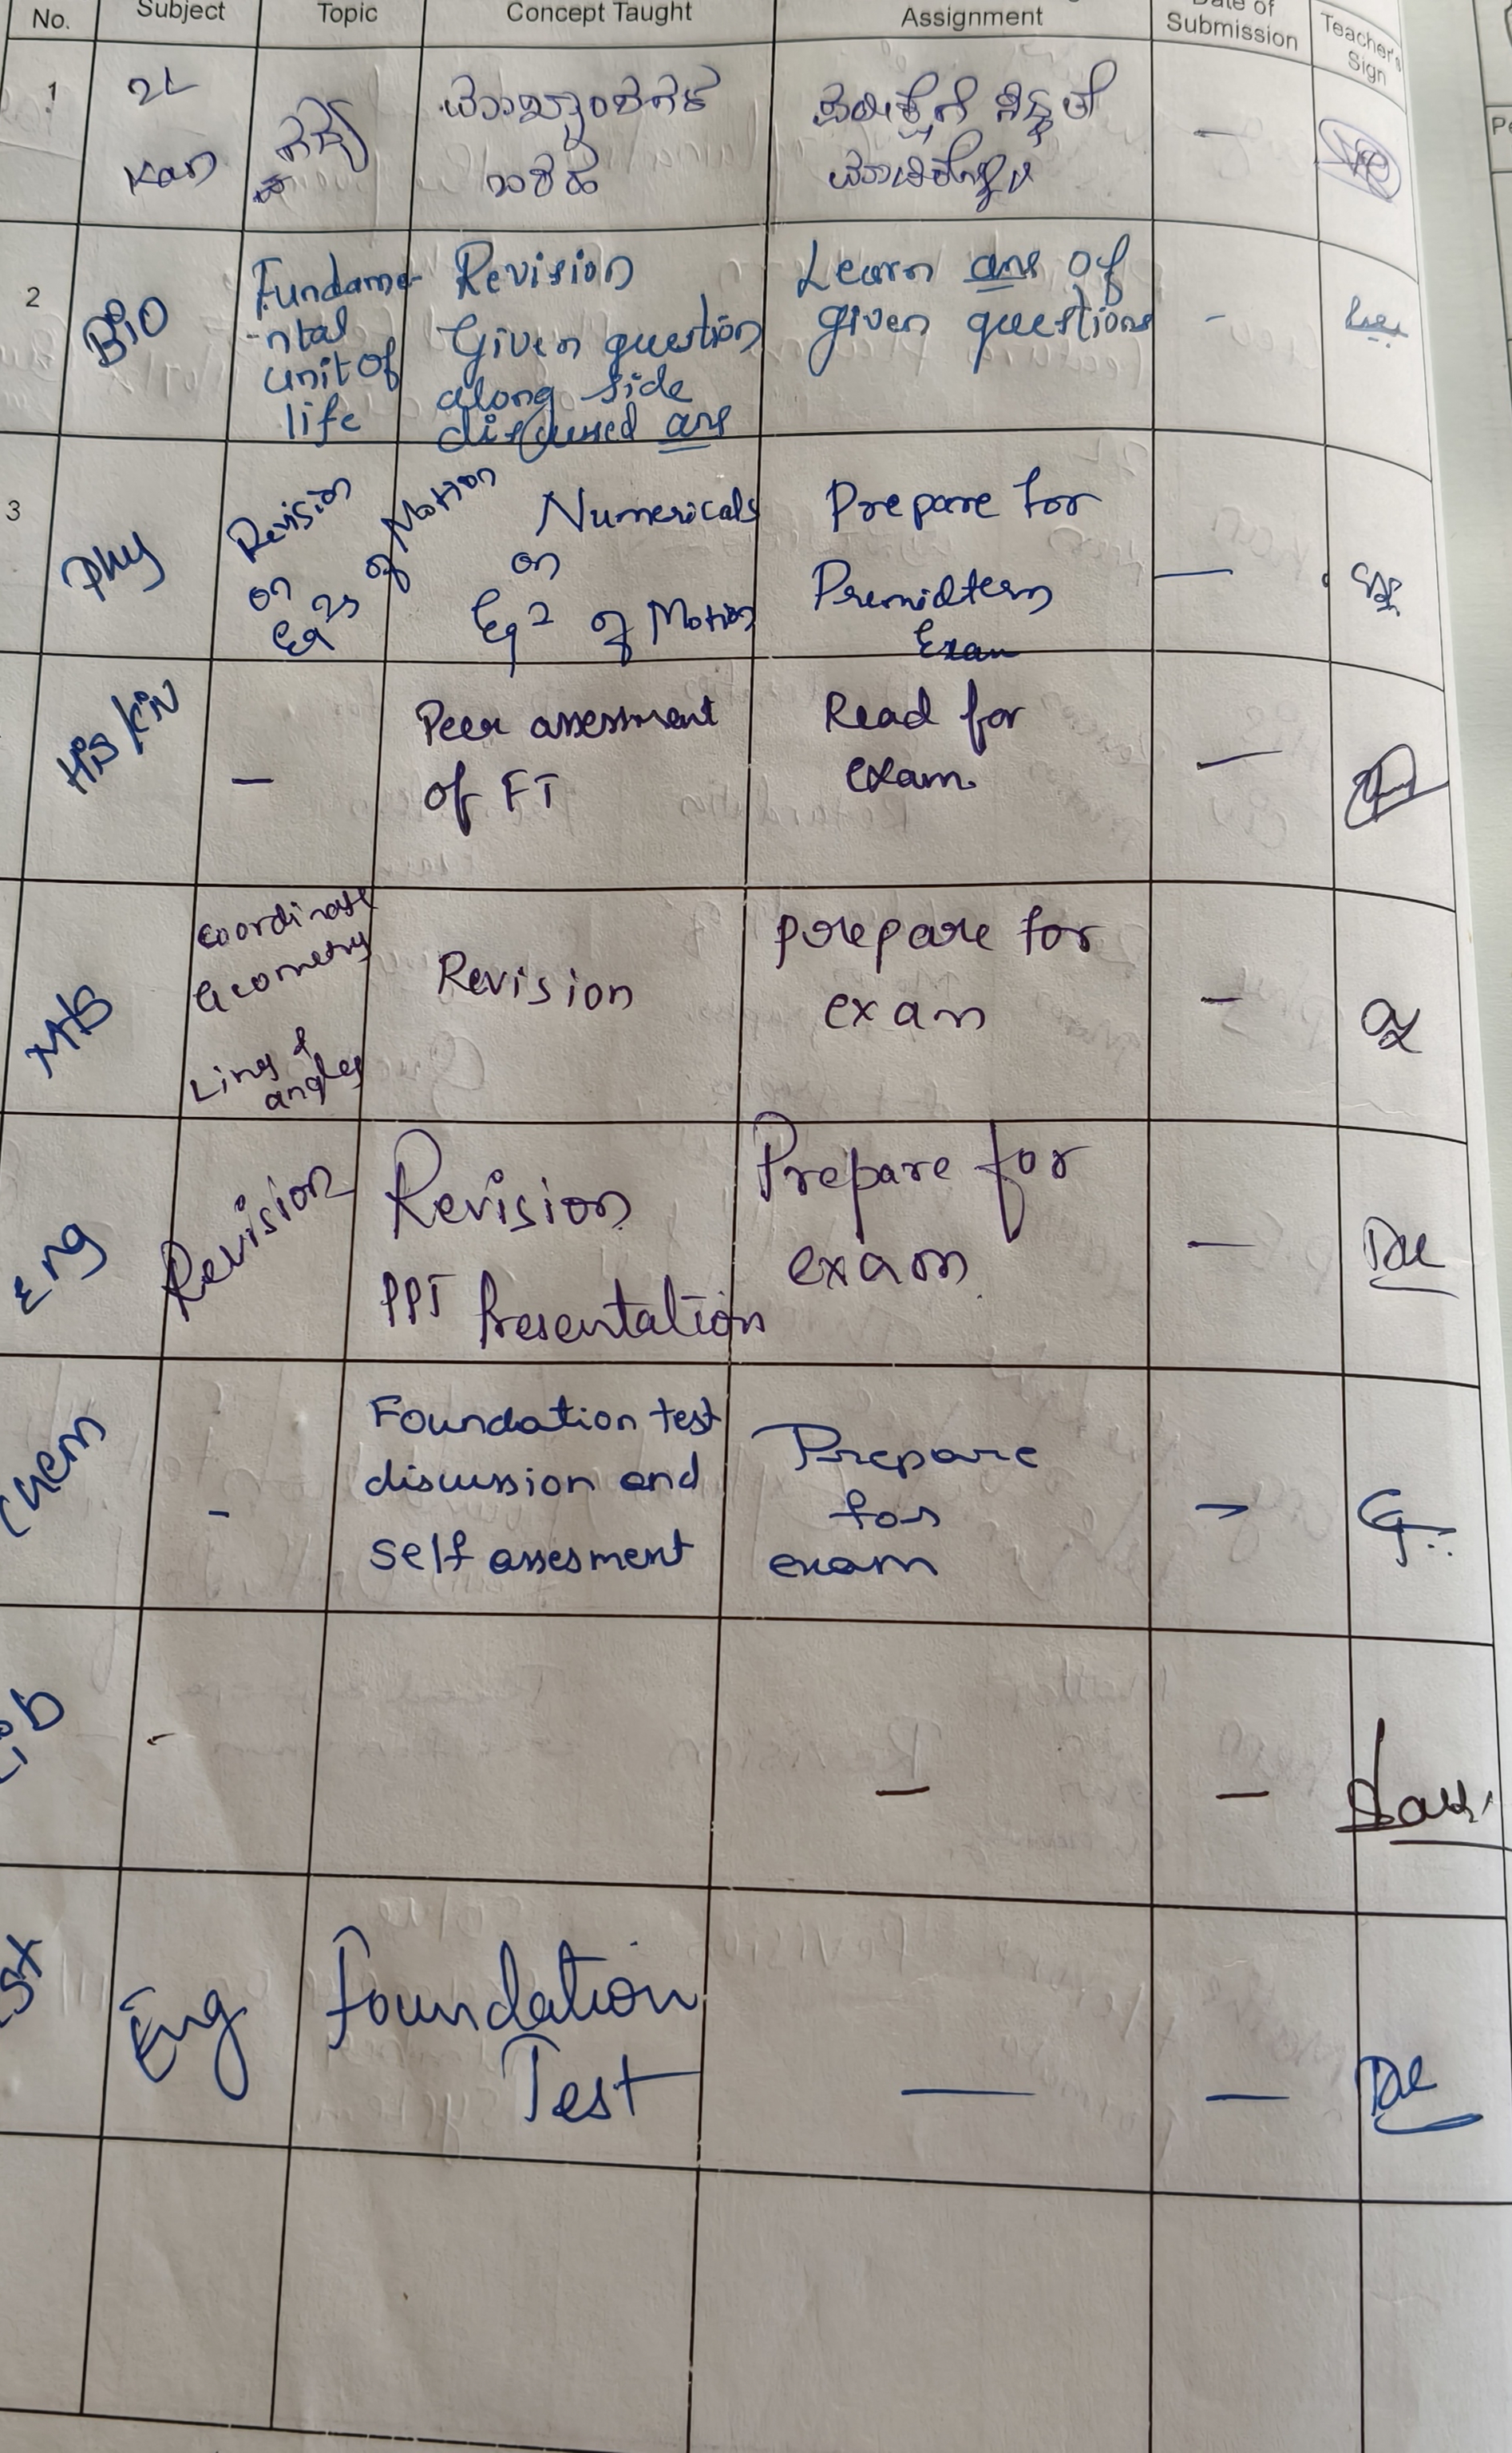 No. Subject Topic Concept Taught Assignment Date of Submission Teacher's Sign
1
2L
Kan
ಪರೀಕ್ಷೆಗೆ ಸಿದ್ಧತೆ
2
Bio
Fundame-
-ntal
unit of
life
Revision
Given question
along side
discussed ans
Learn ans of
given questions
-
3
Phy
Revision
on
Eqns of Motion
Numericals
on
Eqn of Motion
Prepare for
Premidterm
Exam
—
His/Civ
—
Peer assessment
of FT
Read for
exam
—
Mts
Coordinate
Geometry
Lines &
angles
Revision
prepare for
exam
—
Eng
Revision
Revision
PPT Presentation
Prepare for
exam
—
Chem
-
Foundation test
discussion and
self assesment
Prepare
for
exam
-
Lib
-
—
—
Eng
Foundation
Test
—
—